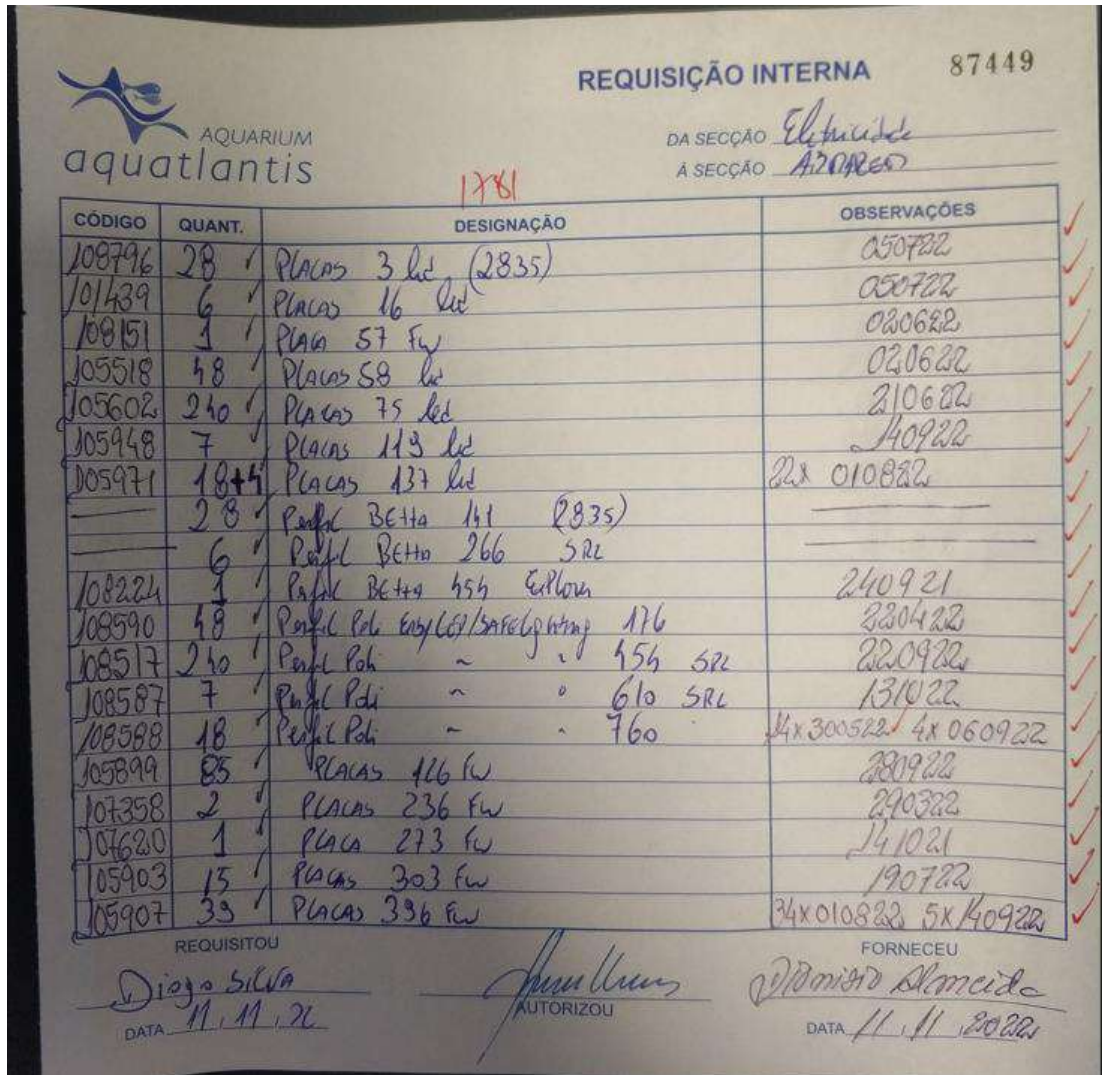 REQUISIÇÃO INTERNA 87449
AQUARIUM
aquatlantis
DA SECÇÃO Eletricidade
À SECÇÃO
1781
CÓDIGO QUANT. DESIGNAÇÃO OBSERVAÇÕES
108796 28 PLACAS 3 led (2835) 050722
101439 6 PLACAS 16 led 050722
108151 1 PLACA 57 FW 020622
105518 48 PLACAS 58 led 020622
105602 240 PLACAS 75 led 210622
105948 7 PLACAS 119 led 140922
105971 18+4 PLACAS 137 led 22x 010822
28 Perfil BEtta 141 (2835)
6 Perfil BEtta 266 SRL
108224 1 Perfil BEtta 454 Explorer 240921
108590 48 Perfil Poli EasyLED/SAFELighting 176 220422
108517 240 Perfil Poli ~ " 454 SRL 220922
108587 7 Perfil Poli ~ " 610 SRL 131022
108588 18 Perfil Poli ~ " 760 14x300522 4x060922
105899 85 PLACAS 126 FW 280922
107358 2 PLACAS 236 FW 290322
107620 1 PLACA 273 FW 141021
105903 15 PLACAS 303 FW 190722
105907 39 PLACAS 396 FW 34x010822 5x140922
REQUISITOU FORNECEU
Diogo SILVA Dionisio Almeida
AUTORIZOU
DATA 11.11.22 DATA 11.11.2022